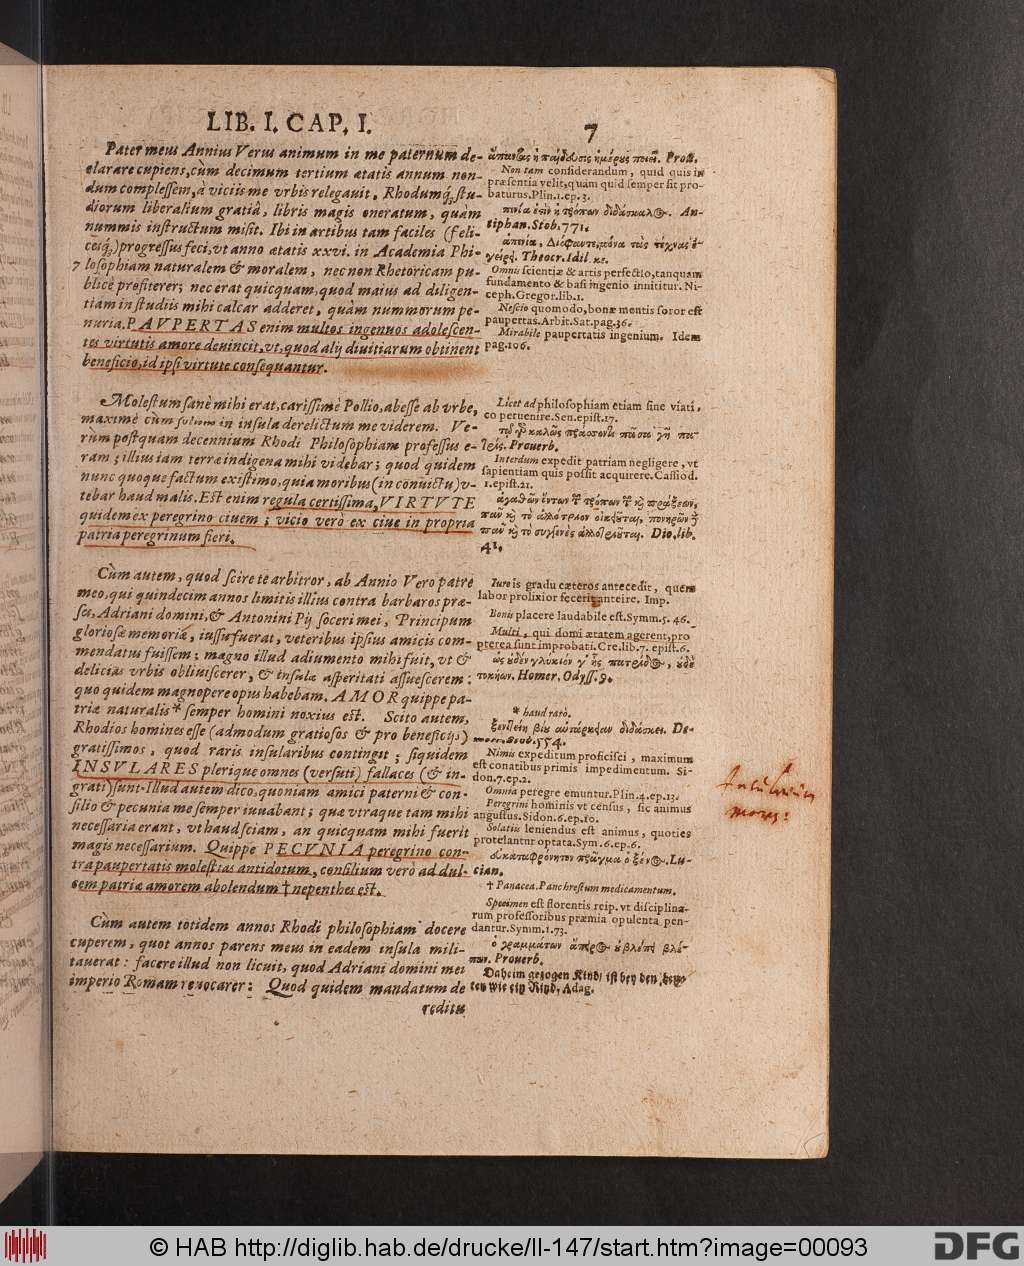 LIB. I. CAP. I.
7
Pater meus Annius Verus animum in me paternum de-
clarare cupiens, cùm decimum tertium ætatis annum non-
dum complessem, à viciis me vrbis relegauit, Rhodumq́; stu-
diorum liberalium gratiâ, libris magis oneratum, quàm
nummis instructum misit. Ibi in artibus tam faciles (feli-
cesq́;) progressus feci, vt anno ætatis xxvi. in Academia Phi-
7 losophiam naturalem & moralem, nec non Rhetoricam pu-
blicè profiterer; nec erat quicquam, quod maius ad diligen-
tiam in studiis mihi calcar adderet, quàm nummorum pe-
nuria. PAVPERTAS enim multos ingenuos adolescen-
tes virtutis amore deuincit, vt, quod alij diuitiarum obtinent
beneficio, id ipsi virtute consequantur.
Molestum sanè mihi erat, carissimè Pollio, abesse ab vrbe,
maximè cùm solum in insula derelictum me viderem. Ve-
rùm postquam decennium Rhodi Philosophiam professus e-
ram; illius iam terræ indigena mihi videbar; quod quidem
nunc quoque factum existimo, quia moribus (in conuictu) v-
tebar haud malis. Est enim regula certissima, VIRTVTE
quidem ex peregrino ciuem; vicio verò ex ciue in propria
patria peregrinum fieri.
Cùm autem, quod scire te arbitror, ab Annio Vero patre
meo, qui quindecim annos limitis illius contra barbaros præ-
ses, Adriani domini, & Antonini Pij soceri mei, Principum
gloriosæ memoriæ, iussu fuerat, veteribus ipsius amicis com-
mendatus fuissem; magno illud adiumento mihi fuit, vt &
delicias vrbis obliuiscerer, & insulæ asperitati assuescerem:
quo quidem magnopere opus habebam. AMOR quippe pa-
triæ naturalis * semper homini noxius est. Scito autem,
Rhodios homines esse (admodum gratiosos & pro beneficijs)
gratissimos, quod raris insularibus contingit; siquidem
INSVLARES plerique omnes (versuti) fallaces (& in-
grati) sunt. Illud autem dico, quoniam amici paterni & con-
silio & pecunia me semper iuuabant; quæ vtraque tam mihi
necessaria erant, vt haud sciam, an quicquam mihi fuerit
magis necessarium. Quippe PECVNIA peregrino con-
tra paupertatis molestias antidotum, consilium verò ad dul-
cem patriæ amorem abolendum † nepenthes est.
Cùm autem totidem annos Rhodi philosophiam docere
cuperem, quot annos parens meus in eadem insula mili-
tauerat: facere illud non licuit, quod Adriani domini mei
imperio Romam reuocarer: Quod quidem mandatum de
reditu
ἅπαντας ἡ παίδευσις ἡμέρους ποιεῖ. Prou.
Non tam considerandum, quid quis in
præsentia velit, quàm quid semper sit pro-
baturus. Plin. 1. ep. 3.
πενία ἐστὶν ἡ τρόπων διδάσκαλος. An-
tiphan. Stob. 771.
ἁ πενία, Διόφαντε, μόνα τὰς τέχνας ἐ-
γείρει. Theocr. Idil. κς.
Omnis scientiæ & artis perfectio, tanquam
fundamento & basi ingenio innititur. Ni-
ceph. Gregor. lib. 1.
Nescio quomodo, bonæ mentis soror est
paupertas. Arbit. Sat. pag. 36.
Mirabile paupertatis ingenium. Idem
pag. 106.
Licet ad philosophiam etiam sine viati-
co peruenire. Sen. epist. 17.
τῷ καλῶς πράσσοντι πᾶσα γῆ πα-
τρίς. Prouerb.
Interdum expedit patriam negligere, vt
sapientiam quis possit acquirere. Cassiod.
1. epist. 21.
Dio. lib.
41.
Iure is gradu cæteros antecedit, quem
labor prolixior fecerit anteire. Imp.
Bonis placere laudabile est. Symm. 5. 46.
Multi, qui domi ætatem agerent, pro
pterea sunt improbati. Cre. lib. 7. epist. 6.
ὡς οὐδὲν γλύκιον ἧς πατρίδος, οὐδὲ
τοκήων. Homer. Odyss. 9.
* haud rarò.
ξενιτείη βίου αὐτάρκειαν διδάσκει. De-
mocr. Stob. 554.
Nimis expeditum proficisci, maximum
est conatibus primis impedimentum. Si-
don. 7. ep. 2.
Omnia peregre emuntur. Plin. 4. ep. 13.
Peregrini hominis vt census, sic animus
angustus. Sidon. 6. ep. 10.
Solatiis leniendus est animus, quoties
protelantur optata. Sym. 6. ep. 6.
εὐκαταφρόνητον πρᾶγμα ὁ ξένος. Lu-
cian.
† Panacea. Panchrestum medicamentum.
Specimen est florentis reip. vt disciplina-
rum professoribus præmia opulenta pen-
dantur. Symm. 1. 73.
ὁ γραμμάτων ἄπειρος οὐ βλέπει βλέ-
πων. Prouerb.
Daheim gezogen Kind, ist bey den
ten wie ein Rind, Adag.
Insularium
mores:
© HAB http://diglib.hab.de/drucke/ll-147/start.htm?image=00093
DFG